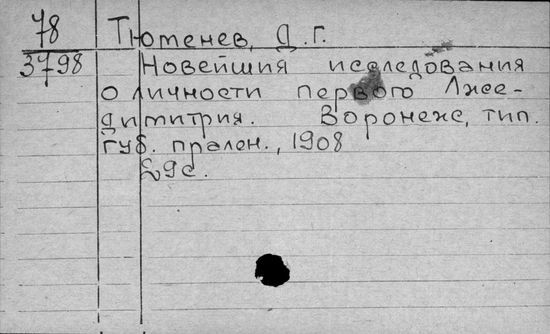 78
Тютенев, Д. Г.
3798
Новейшия исследования
о личности первого Лже-
димитрия. Воронеж, тип.
губ. правлен., 1908
29с.